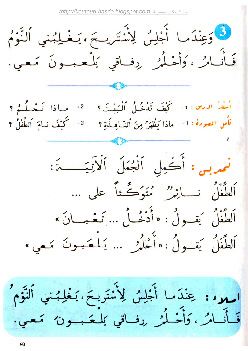 3 وَعِنْدَما أَجْلِسُ لِأَسْتَريحَ، يَغْلِبُني النَّوْمُ
فَأَنامُ، وَأَحْلُمُ رِفاقي يَلْعَبونَ مَعي.
كَيْفَ تَدْخُلُ الْبَيْتَ؟ 2- ماذا تَحْلُمُ؟
كَيْفَ نامَ الطِّفْلُ؟
تمرين: أُكْمِلُ الْجُمَلَ الْآتِيَةَ:
الطِّفْلُ نائِمٌ مُتَوَكِّئاً على ...
الطِّفْلُ يَقولُ: «أَدْخُلُ ... تَعْبانَ»
الطِّفْلُ يَقولُ: «أَحْلُمُ ... يَلْعَبونَ مَعي»
املاء: عِنْدَما أَجْلِسُ لِأَسْتَريحَ، يَغْلِبُني النَّوْمُ
فَأَنامُ، وَأَحْلُمُ رِفاقي يَلْعَبونَ مَعي.